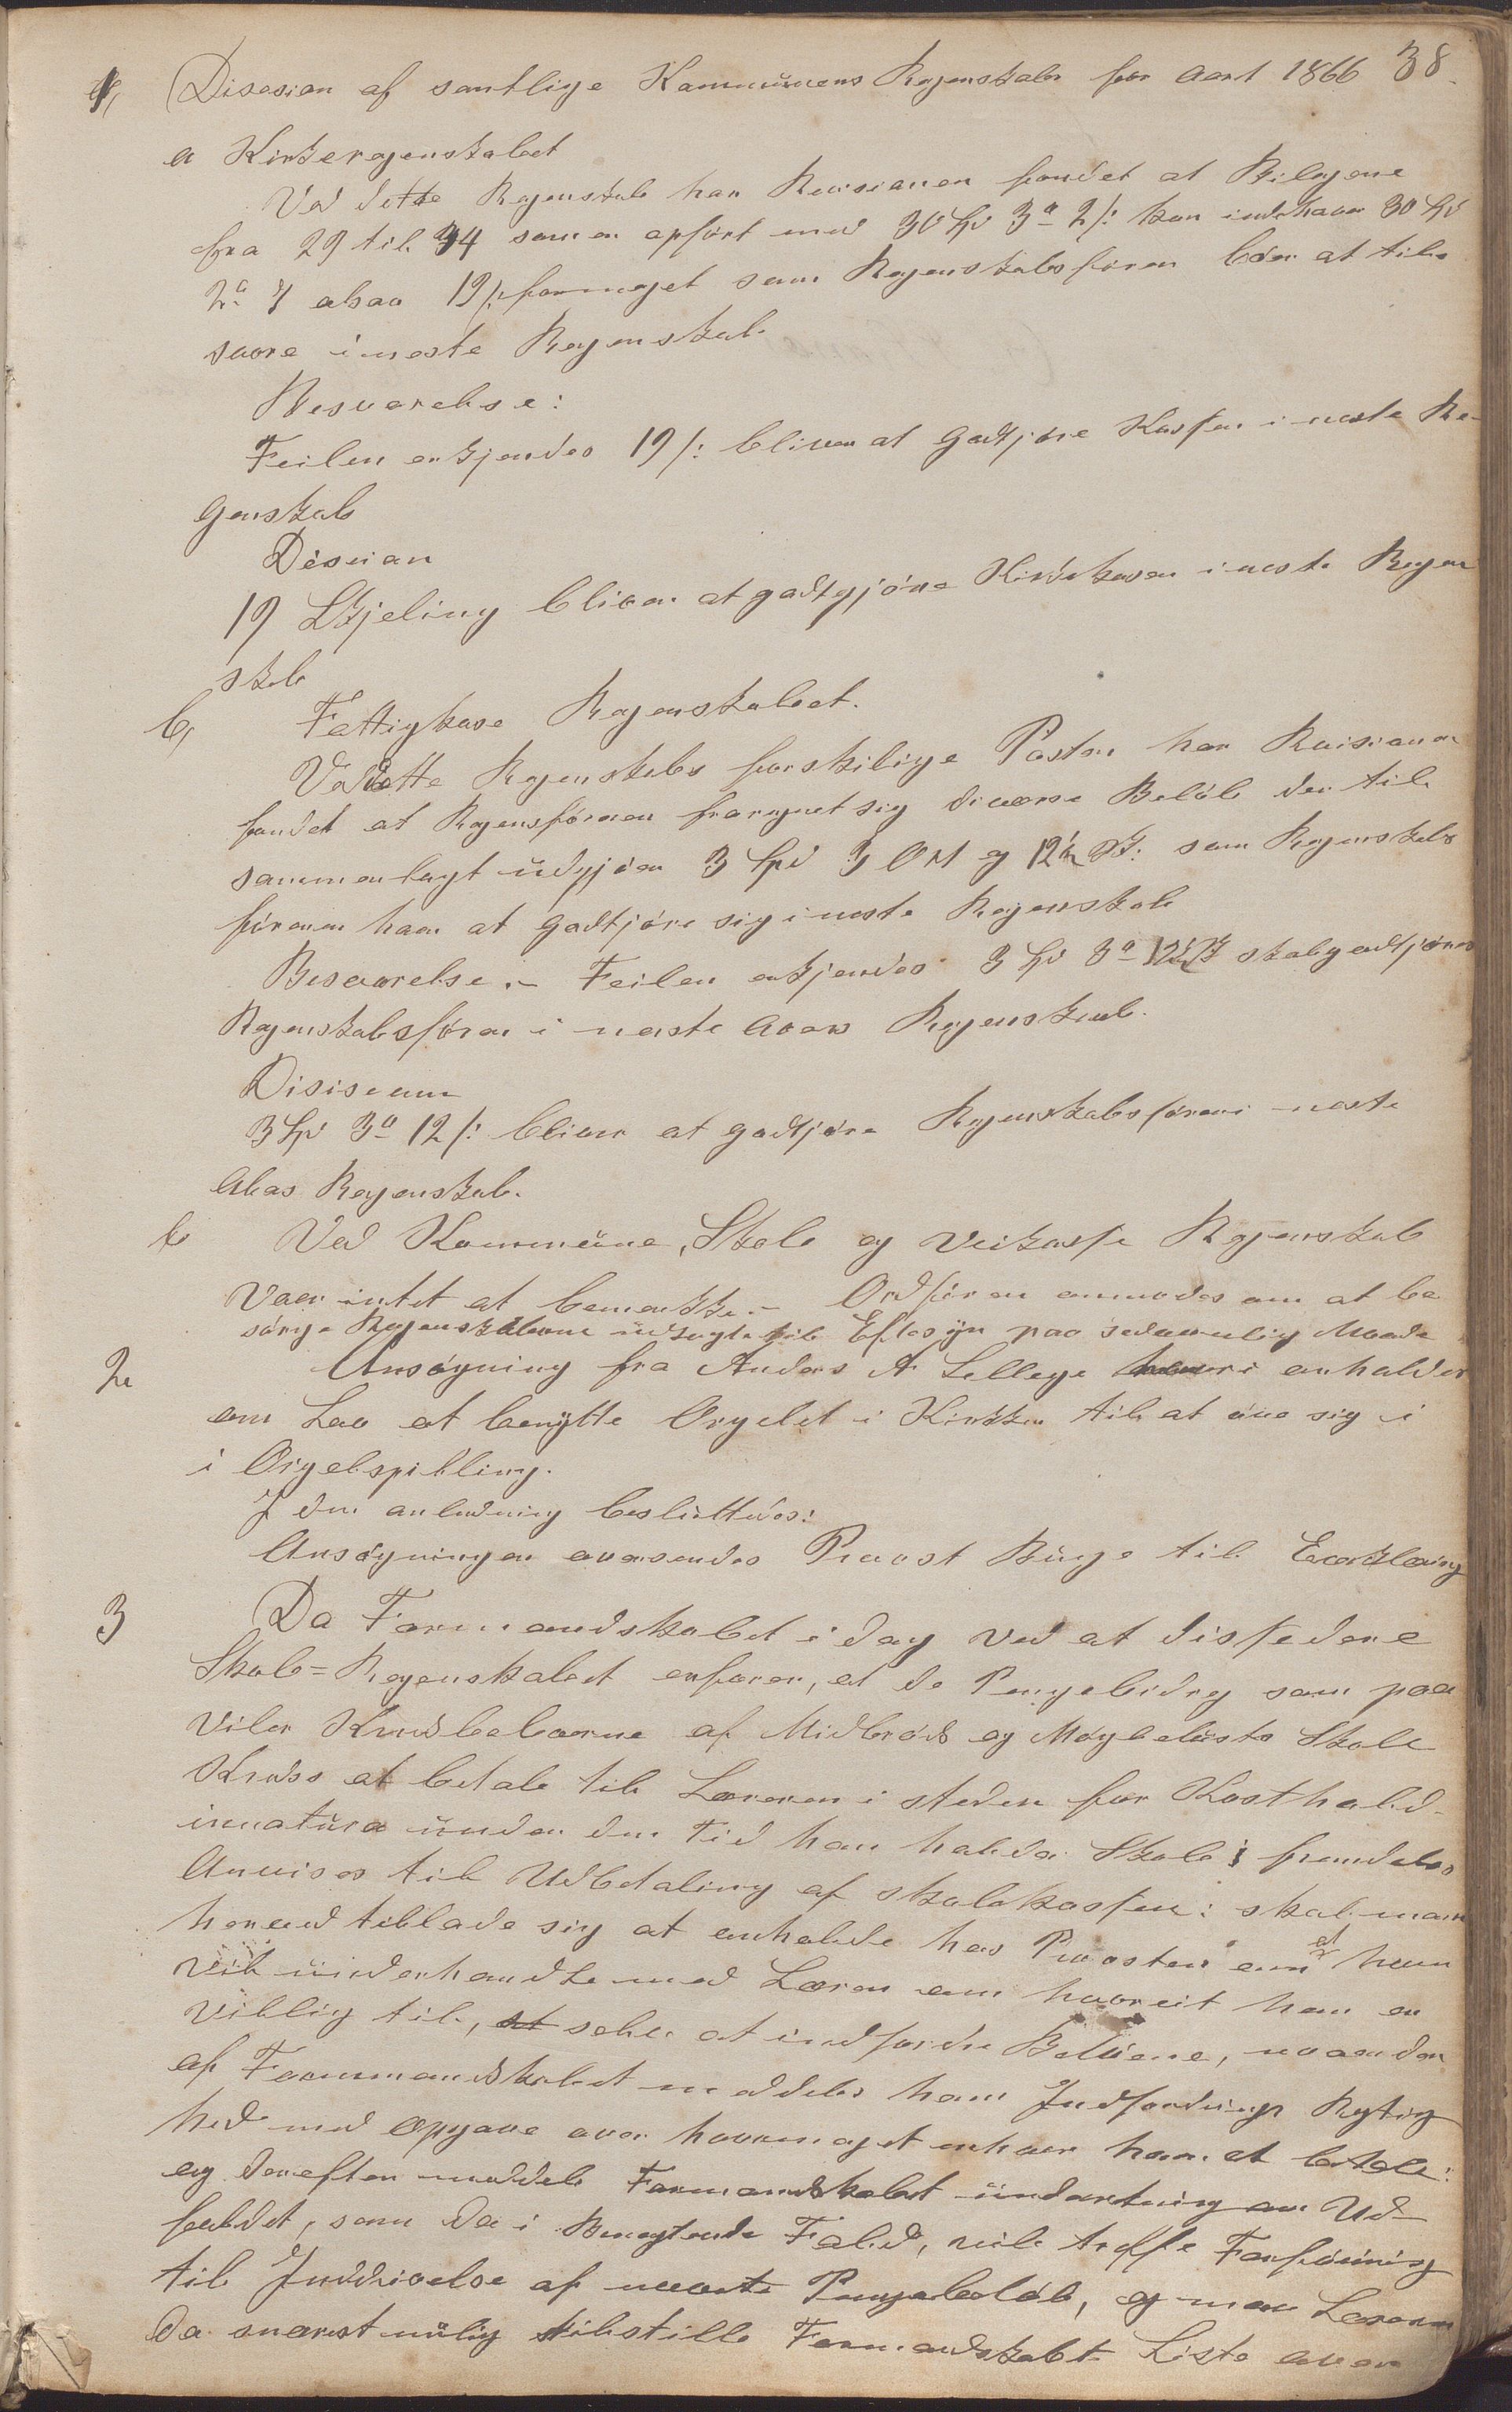 38
1, Disesian af samtlige Kammunens Regenskaber for aart 1866
a Kirkeregenskabet
Ved dette Regenskab har Revisianen fondet at Bilagene
fra 29 til 34 som er apført med 30 Spd 3 ort 2 /: kan indehaver 30 Spd
2 ort 7 alsaa 19 /: formeget som Regenskabsføren bör at tils
svore i neste Regenskab
Besvarelse:
Feilen erkjendes 19 /: bliver at Godtjöre Kassen i neste Re-
genskab
Desisian
19 Skjeling bliver at godtgjöre Kirkekasen i neste Regen
skab
b, Fattigkase Regenskabet.
Ved dette Regenskabs forskilige Poster har Revisianen
fondet at Regensføreren fraregnet sig diverse Belöb der til
sammenlagt udgjör 3 Spd 3 Ort og 12½ Sk: som Regenskabs
föreren haer at godtjöre sig i neste Regenskab
Besvarelse.- Feilen erkjendes 3 Spd 3 ort 12½ Sk skal godtjöres
Regenskabsfören i neste Aaers Regenskab.
Disisian
3 Spd 3 ort 12 /: bliver at godtjöre Regenskabsføren i neste
Aars Regenskab.
c Ved Kommune, Skole og Veikasse Regenskab
Vaer intet at bemerkke.- Ordføren anmodes om at be
sörge Regenskaberne udlagte til Eftesyn paa sedvanlig Maade
2 Ansögning fra Anders A Lellege hvori anholdes
om Lov at benytte Orgelet i Kirkken til at öve sig i
i Orgelspilling.
I den anledning besluttedes:
Ansögningen oversendes Provst Buge til Eærklæring
3 Da Formandskabet i dag ved at disidere
Skole=Regenskabet erfarer, at de Pengebidrag som paa
viler Kredsbeboerne af Midbröd og Mögbelüsts Skole
Kreds at betale til Læreren i steden for Kosthold-
innatura under den Tid han holder Skole i fremdeles
Anvises til Udbetaling af Skolekassen: skal man
herved tillade sig at anholde hos Provsten om at han
vil underhandle med Læren om hvorvit han er
villig til, at selv at indfordre Belöene, naar der
af Formandskabet meddeles ham Indfordrings Regtig
hed med opgave over hvormeget enhver haer at betale:
og derefter meddele Formandskabet underretning om Ud-
faldet, som da i Benegtende Fald, vil treffe Forföining
til Inddrivelse af nævnte Pengebelöb, og maa Læreren
da snarest mulig tilstille Formandskabet Liste over